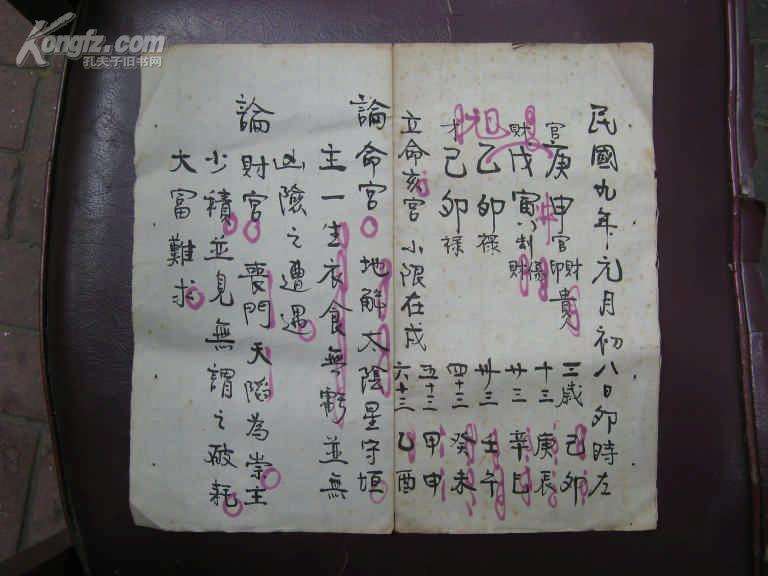 Kongfz.com
孔夫子旧书网
民國九年元月初八日卯時左
官 庚申 官印財貴
財 戊寅 財
乙卯 祿
才 己卯 祿
祖
三歲 己卯
十三 庚辰
廿三 辛巳
卅三 壬午
四十三 癸未
五十三 甲申
六十三 乙酉
立命亥宮 小限在戌
論命宮 地解太陰星守垣
主一生衣食無虧並無
凶險之遭遇
論財宮 喪門天陷為崇主
少積並見無謂之破耗
大富難求